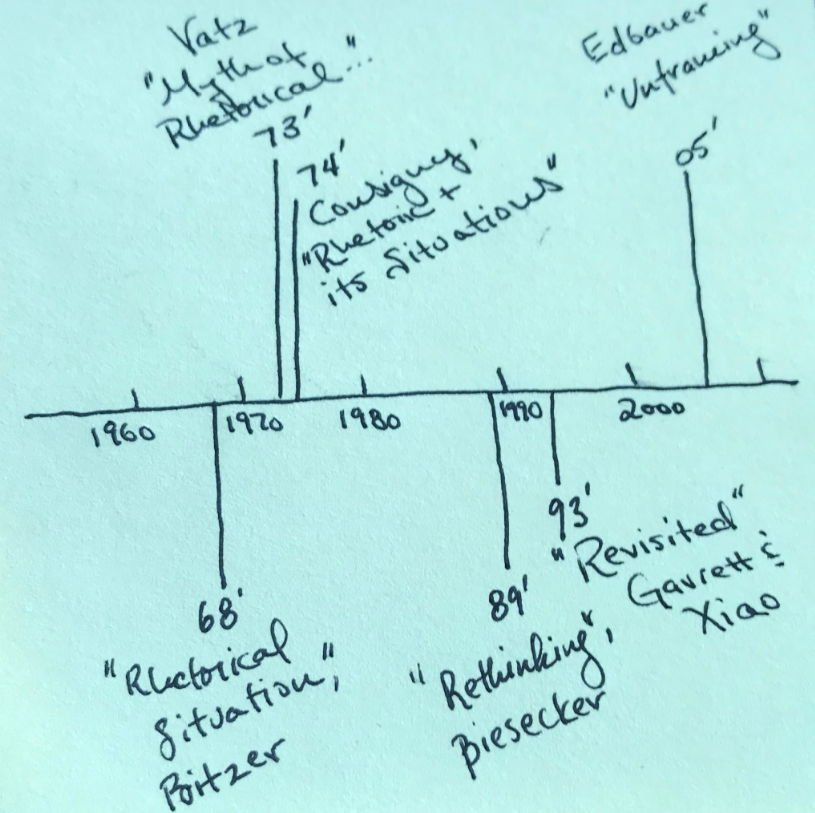 Vatz
"Myth of
Rhetorical..."
73'
74'
Consigny,
"Rhetoric +
its Situations"
Edbauer
"Unframing"
05'
1960
1970
1980
1990
2000
68'
"Rhetorical
Situation,"
Bitzer
89'
"Rethinking",
Biesecker
93'
"Revisited"
Garrett &
Xiao